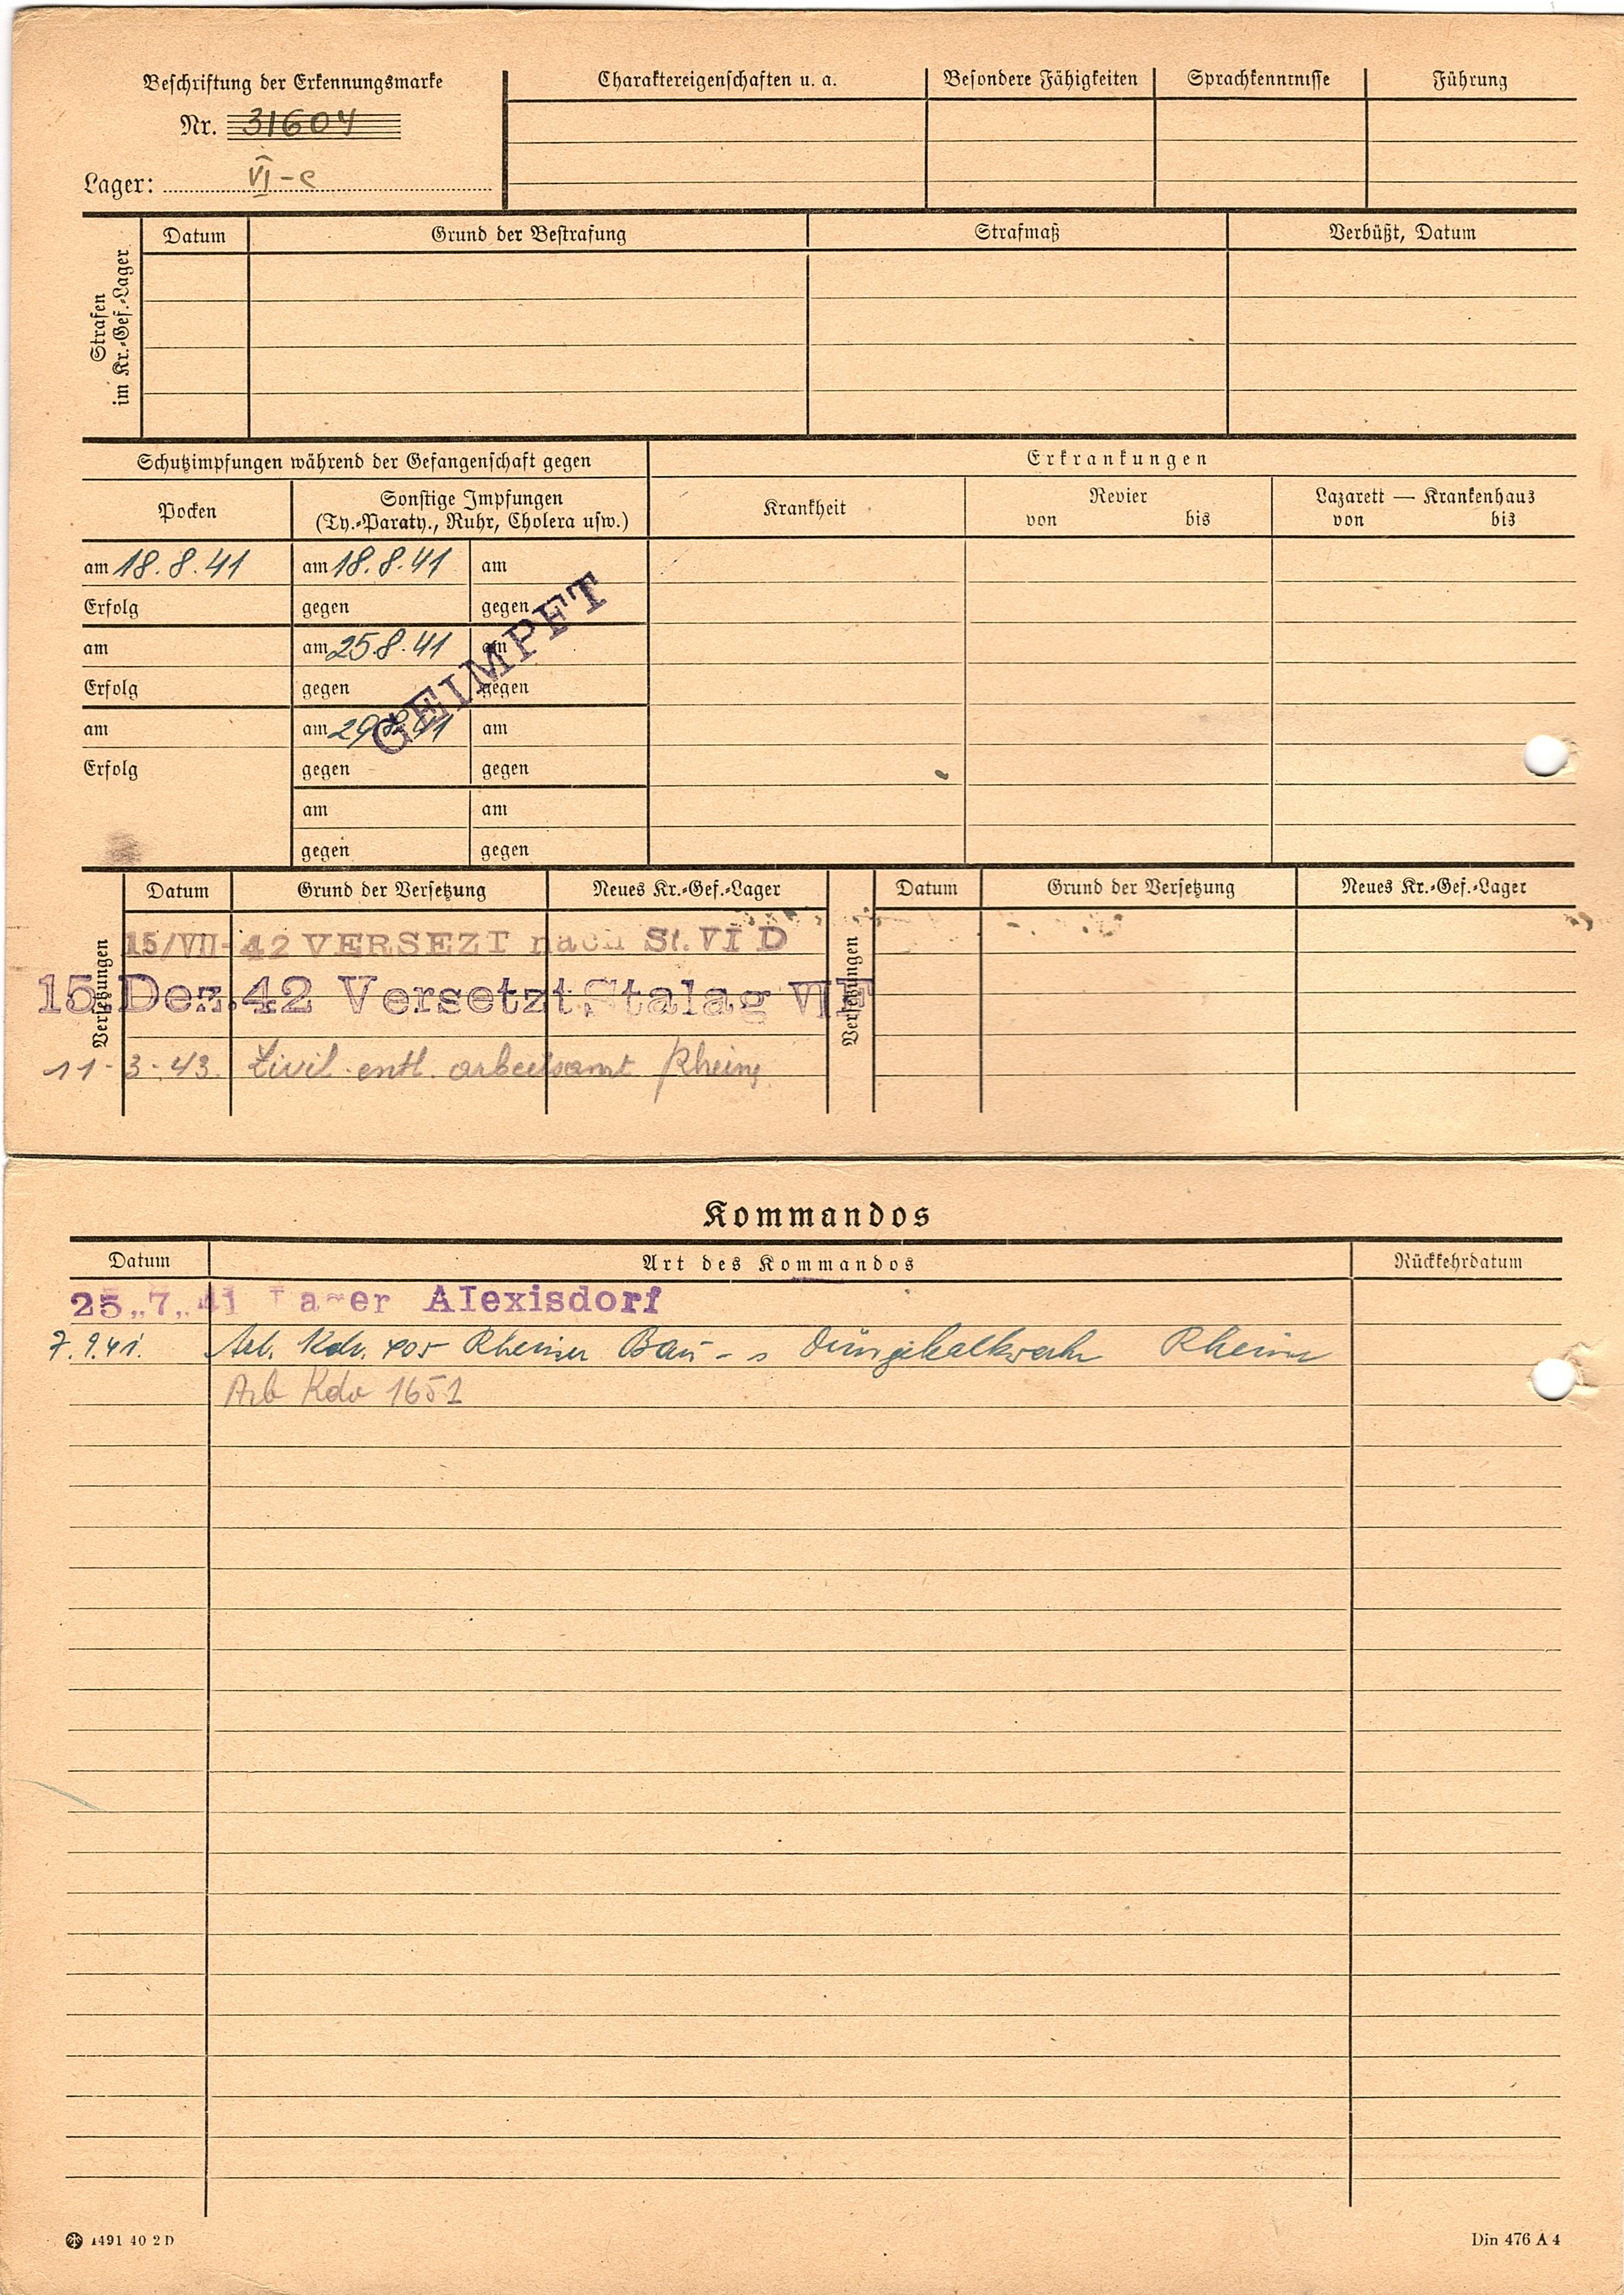 Beschriftung der Erkennungsmarke
Nr. 31604
Lager: VI-c
Charaktereigenschaften u. a. Besondere Fähigkeiten Sprachkenntnisse Führung
Strafen im Kr.-Gef.-Lager
Datum Grund der Bestrafung Strafmaß Verbüßt, Datum
Schutzimpfungen während der Gefangenschaft gegen
Erkrankungen
Pocken
Sonstige Impfungen
(Ty.-Paraty., Ruhr, Cholera usw.)
Krankheit
Revier
von bis
Lazarett — Krankenhaus
von bis
am 18. 8. 41 am 18. 8. 41 am
Erfolg gegen gegen
am am 25.8.41 am
Erfolg gegen gegen
GEIMPFT
am am 29.8.41 am
Erfolg gegen gegen
am am
gegen gegen
Versetzungen
Datum Grund der Versetzung Neues Kr.-Gef.-Lager
Versetzungen
Datum Grund der Versetzung Neues Kr.-Gef.-Lager
15/VII-42 VERSEZT nach St. VI D
15 Dez. 42 Versetzt Stalag VI F
11-3-43. Zivil. entl. arbeitsamt Rheine
Kommandos
Datum Art des Kommandos Rückkehrdatum
25.,7.,41 Lager Alexisdorf
7.9.41. Arb. Kdo. 405 Rheiner Bau- Düngekalkwerke Rheine
Arb Kdo 1651
1491 40 2 D
Din 476 A 4